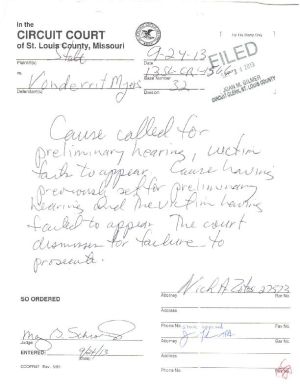 In the
CIRCUIT COURT
of St. Louis County, Missouri
For File Stamp Only
FILED
JOAN M. GILMER
CIRCUIT CLERK, ST. LOUIS COUNTY
State
Plaintiff(s)
9-24-13
Date
vs.
Case Number
Vonderrit Myers
Defendant(s)
32
Division
Cause called for
preliminary hearing, victim
fails to appear. Cause having
previously set for preliminary
hearing and the victim having
failed to appear. The court
dismisses for failure to
prosecute.
SO ORDERED
Judge
ENTERED: 9/24/13
Attorney
Bar No.
Address
Phone No.
Fax No.
Attorney
Bar No.
Address
Phone No.
Fax No.